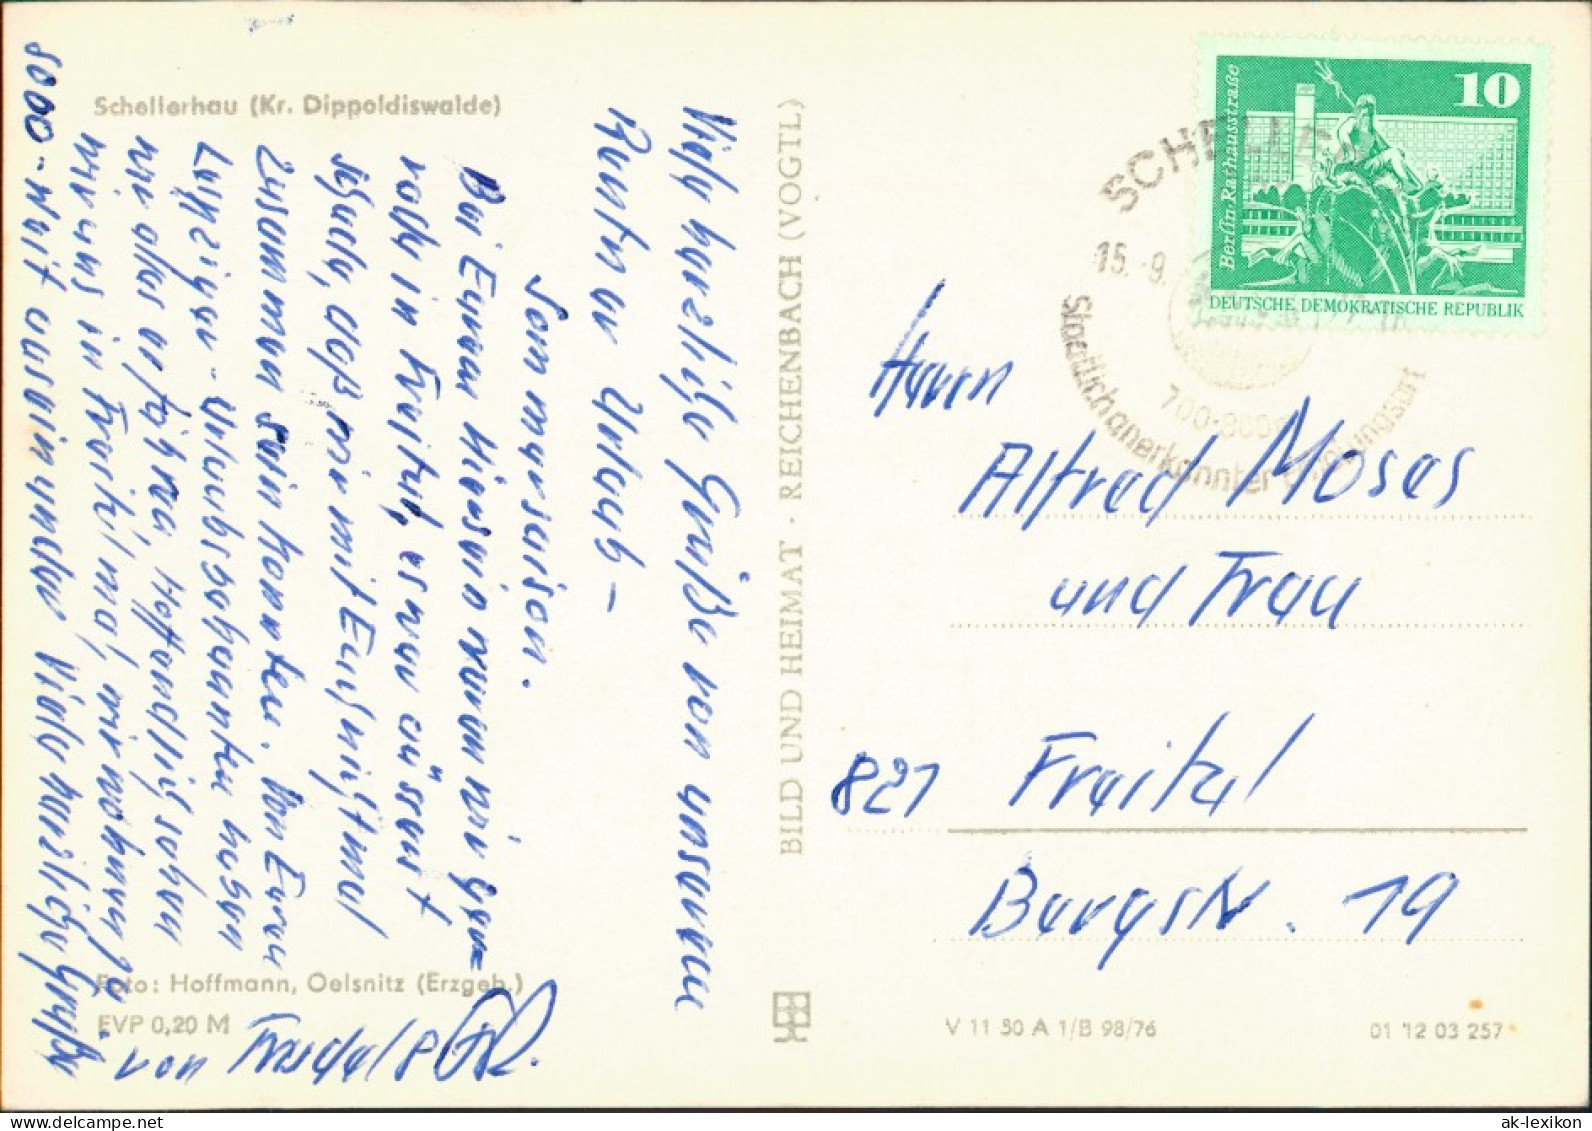 Schellerhau (Kr. Dippoldiswalde)
Viele herzliche Grüße von unserem
Bunten Urlaub –
Sommerreisen.
Bei Eurem Hiersein waren wir ge=
rade in Freital, es war äüserst
schade, daß wir mit Euch nicht mal
zusammen sein konnten. Von Euren
Leipziger-Urlaubsbekannten haben
wir alles erfahren, hoffendlich sehen
wir uns in Freital mal, wir wohnen ja
sooo-weit auseinander Viele herzliche Grüße
von
Foto: Hoffmann, Oelsnitz (Erzgeb.)
EVP 0,20 M
BILD UND HEIMAT · REICHENBACH (VOGTL)
10
Berlin, Rathausstraße
DEUTSCHE DEMOKRATISCHE REPUBLIK
SCHELLER
15. -9.
700-800
Staatlich anerkannter Erholungsort
Herrn
Alfred Moses
und Frau
821 Freital
Burgstr. 19
V 11 50 A 1/B 98/76
01 12 03 257
ak-lexikon